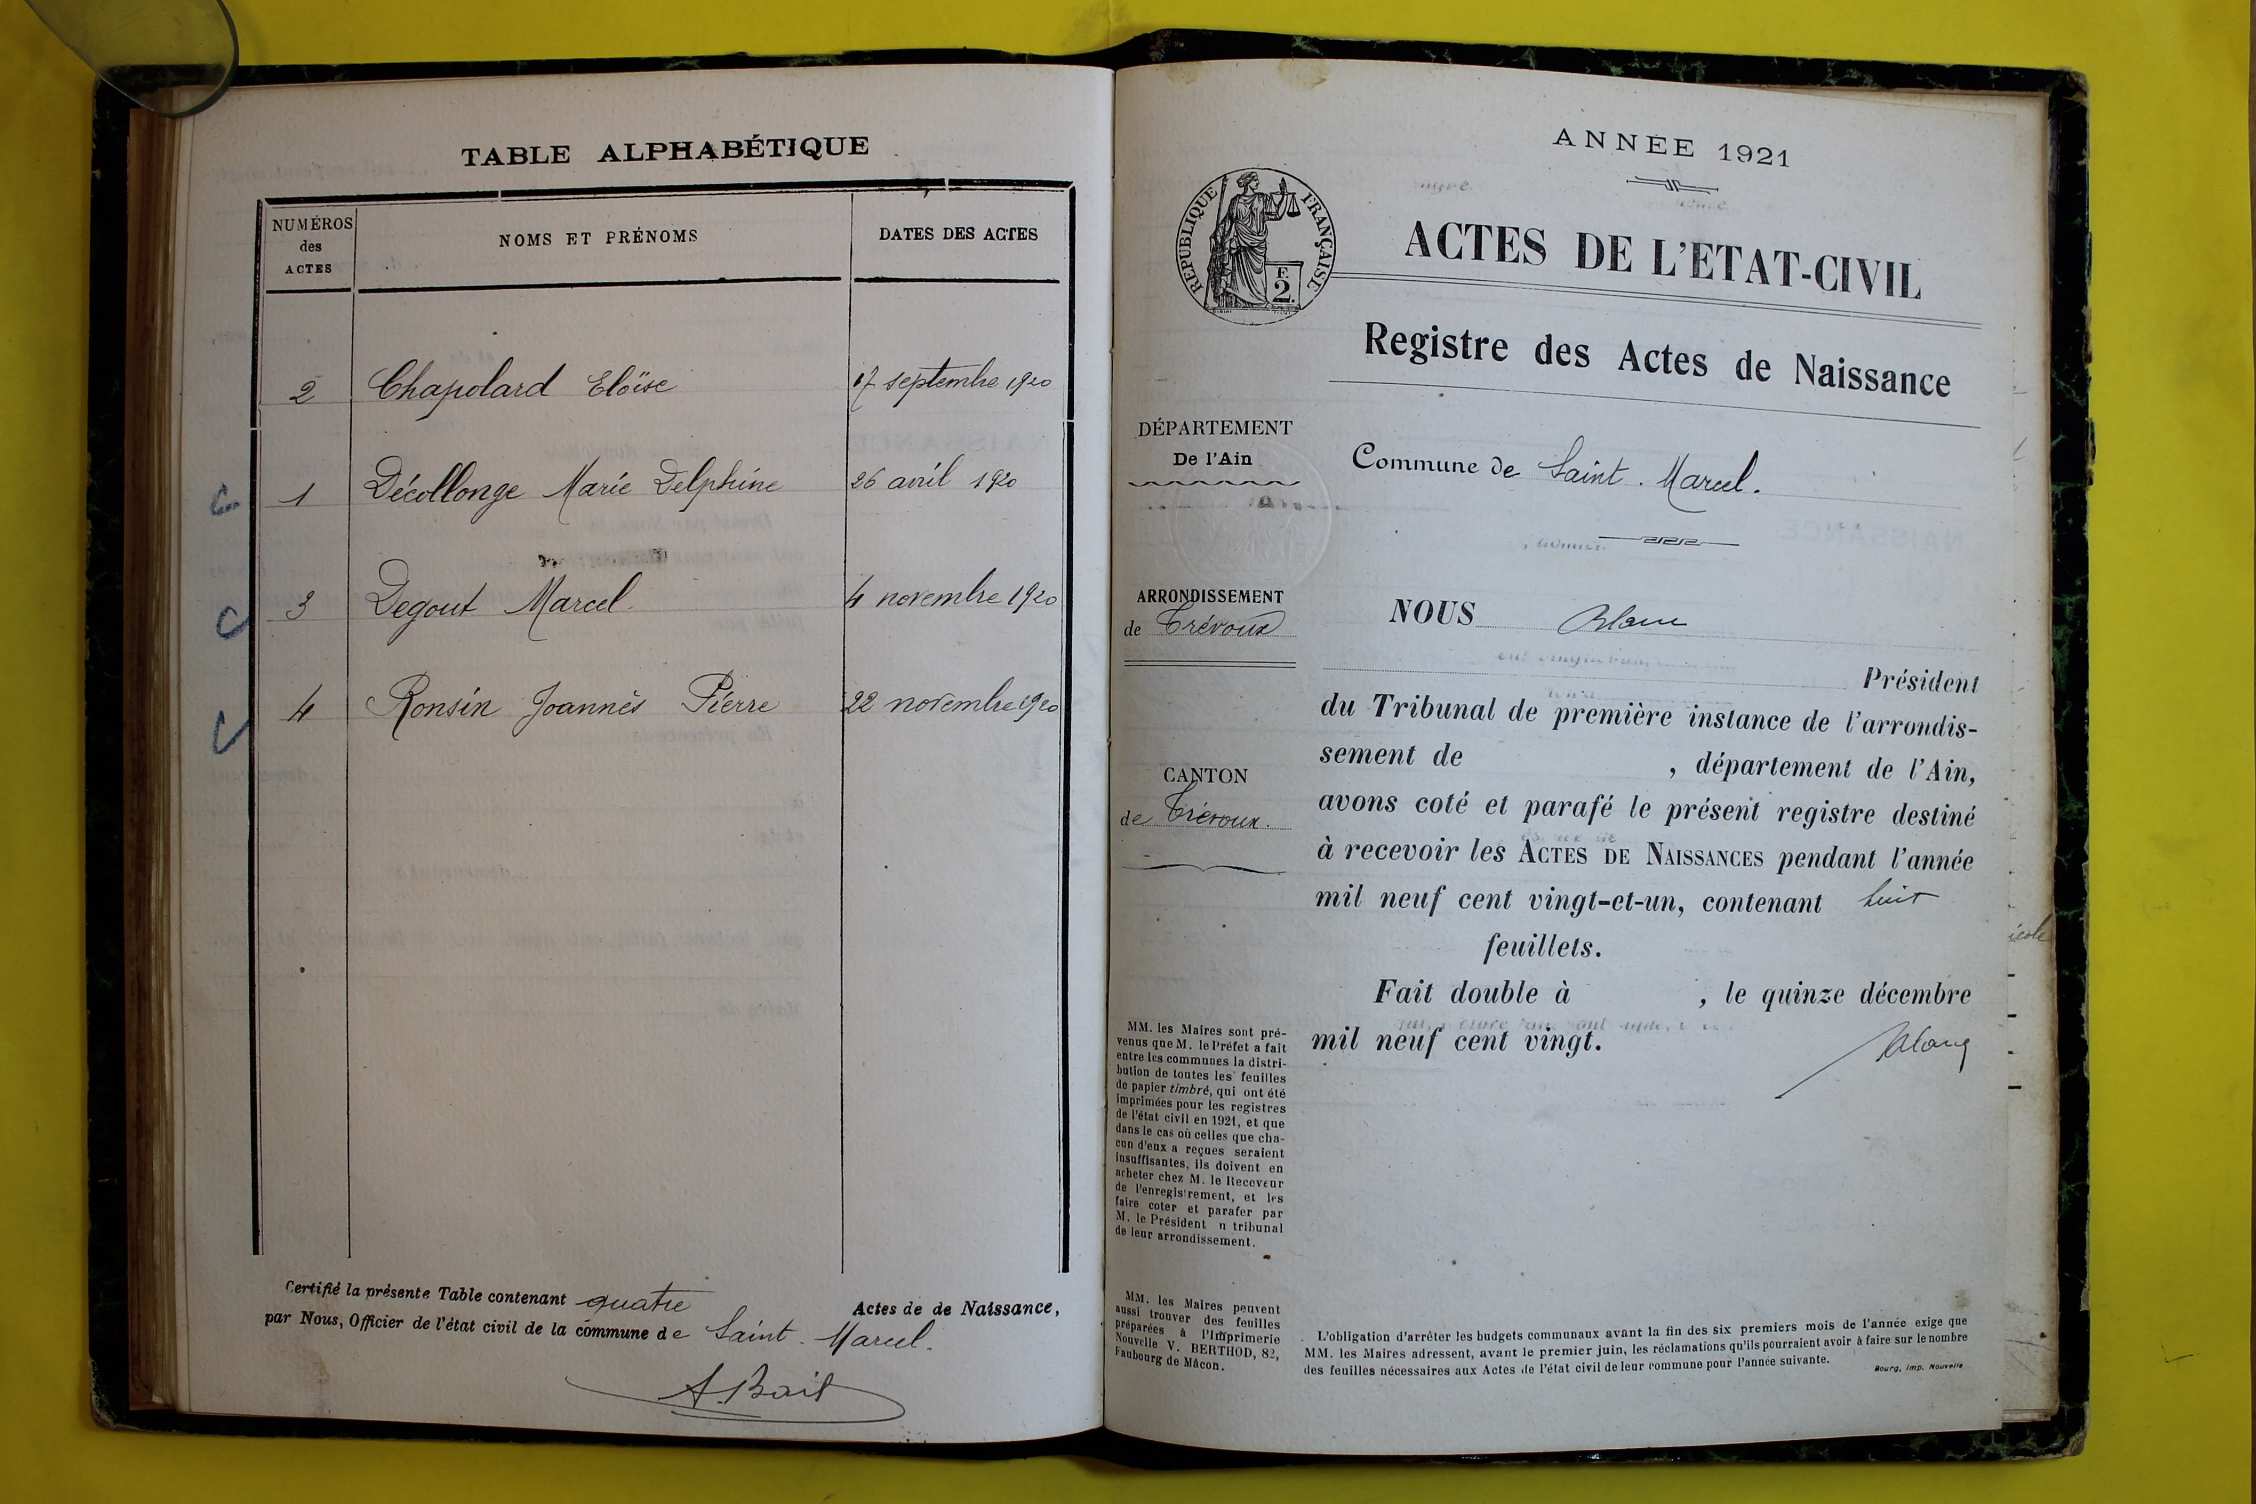 TABLE ALPHABÉTIQUE
NUMÉROS
des
ACTES
NOMS ET PRÉNOMS
DATES DES ACTES
2 Chapolard Eloïse 17 septembre 1920
1 Décollonge Marie Delphine 26 avril 1920
3 Degout Marcel 4 novembre 1920
4 Ronsin Joannès Pierre 22 novembre 1920
Certifié la présente Table contenant quatre Actes de de Naissance,
par Nous, Officier de l'état civil de la commune de Saint-Marcel.
ANNÉE 1921
REPUBLIQUE FRANÇAISE
F.
2.
ACTES DE L'ETAT-CIVIL
Registre des Actes de Naissance
DÉPARTEMENT
De l'Ain
Commune de Saint-Marcel.
ARRONDISSEMENT
de Trévoux
CANTON
de Trévoux.
NOUS
Président
du Tribunal de première instance de l'arrondis-
sement de , département de l'Ain,
avons coté et parafé le présent registre destiné
à recevoir les ACTES DE NAISSANCES pendant l'année
mil neuf cent vingt-et-un, contenant huit
feuillets.
Fait double à , le quinze décembre
mil neuf cent vingt.
MM. les Maires sont pré-
venus que M. le Préfet a fait
entre les communes la distri-
bution de toutes les feuilles
de papier timbré, qui ont été
imprimées pour les registres
de l'état civil en 1921, et que
dans le cas où celles que cha-
cun d'eux a reçues seraient
insuffisantes, ils doivent en
acheter chez M. le Receveur
de l'enregistrement, et les
faire coter et parafer par
M. le Président n tribunal
de leur arrondissement.
MM. les Maires peuvent
aussi trouver des feuilles
préparées à l'Imprimerie
Nouvelle V. BERTHOD, 82,
Faubourg de Mâcon.
L'obligation d'arrêter les budgets communaux avant la fin des six premiers mois de l'année exige que
MM. les Maires adressent, avant le premier juin, les réclamations qu'ils pourraient avoir à faire sur le nombre
des feuilles nécessaires aux Actes de l'état civil de leur commune pour l'année suivante.
Bourg, Imp. Nouvelle